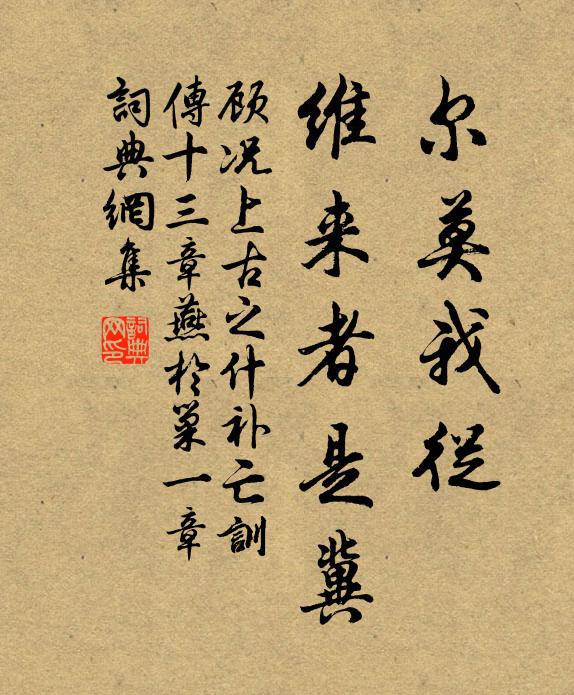 尔莫我從
维来者是冀
顾况上古之什补亡訓
傳十三章燕於巢一章
詞典網集
詞典网印